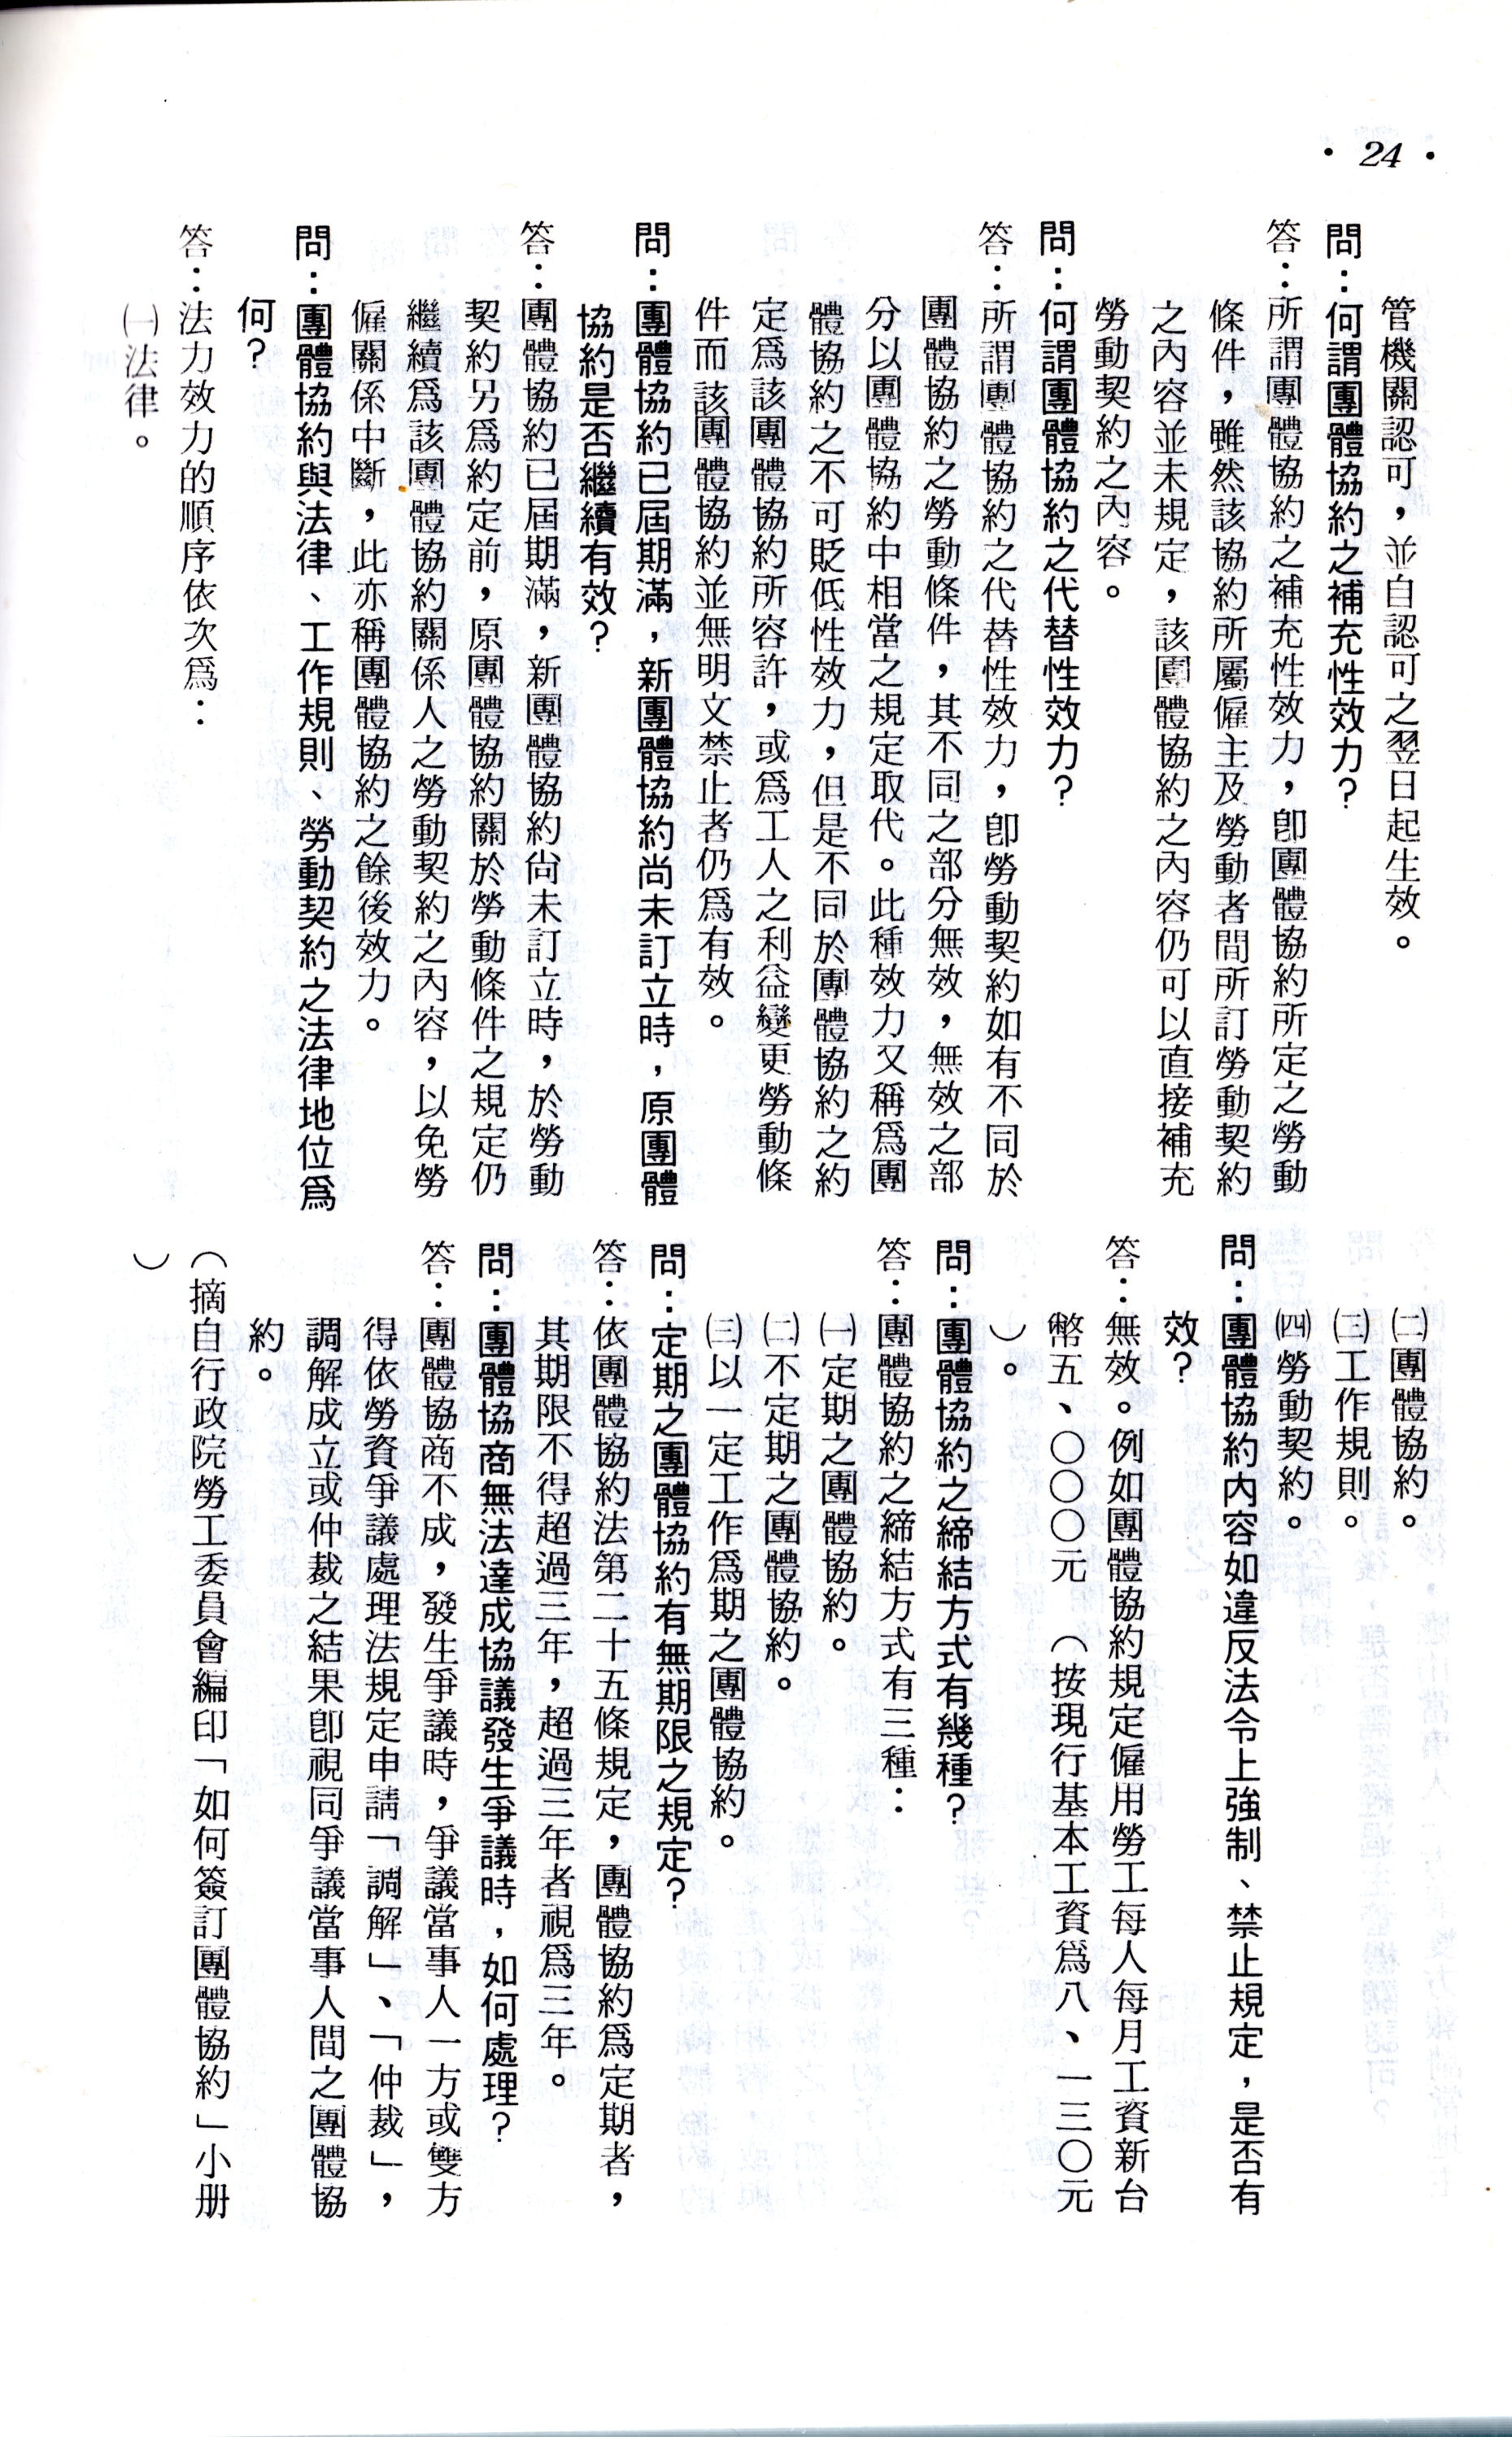 • 24 •
管機關認可，並自認可之翌日起生效。
問：何謂團體協約之補充性效力？
答：所謂團體協約之補充性效力，卽團體協約所定之勞動
條件，雖然該協約所屬僱主及勞動者間所訂勞動契約
之內容並未規定，該團體協約之內容仍可以直接補充
勞動契約之內容。
問：何謂團體協約之代替性效力？
答：所謂團體協約之代替性效力，卽勞動契約如有不同於
團體協約之勞動條件，其不同之部分無效，無效之部
分以團體協約中相當之規定取代。此種效力又稱爲團
體協約之不可貶低性效力，但是不同於團體協約之約
定爲該團體協約所容許，或爲工人之利益變更勞動條
件而該團體協約並無明文禁止者仍爲有效。
問：團體協約已屆期滿，新團體協約尚未訂立時，原團體
協約是否繼續有效？
答：團體協約已屆期滿，新團體協約尚未訂立時，於勞動
契約另爲約定前，原團體協約關於勞動條件之規定仍
繼續爲該團體協約關係人之勞動契約之內容，以免勞
僱關係中斷，此亦稱團體協約之餘後效力。
問：團體協約與法律、工作規則、勞動契約之法律地位爲
何？
答：法力效力的順序依次爲：
㈠法律。
㈡團體協約。
㈢工作規則。
㈣勞動契約。
問：團體協約內容如違反法令上強制、禁止規定，是否有
效？
答：無效。例如團體協約規定僱用勞工每人每月工資新台
幣五、〇〇〇元（按現行基本工資爲八、一三〇元
）。
問：團體協約之締結方式有幾種？
答：團體協約之締結方式有三種：
㈠定期之團體協約。
㈡不定期之團體協約。
㈢以一定工作爲期之團體協約。
問：定期之團體協約有無期限之規定？
答：依團體協約法第二十五條規定，團體協約爲定期者，
其期限不得超過三年，超過三年者視爲三年。
問：團體協商無法達成協議發生爭議時，如何處理？
答：團體協商不成，發生爭議時，爭議當事人一方或雙方
得依勞資爭議處理法規定申請「調解」、「仲裁」，
調解成立或仲裁之結果卽視同爭議當事人間之團體協
約。
（摘自行政院勞工委員會編印「如何簽訂團體協約」小册
）